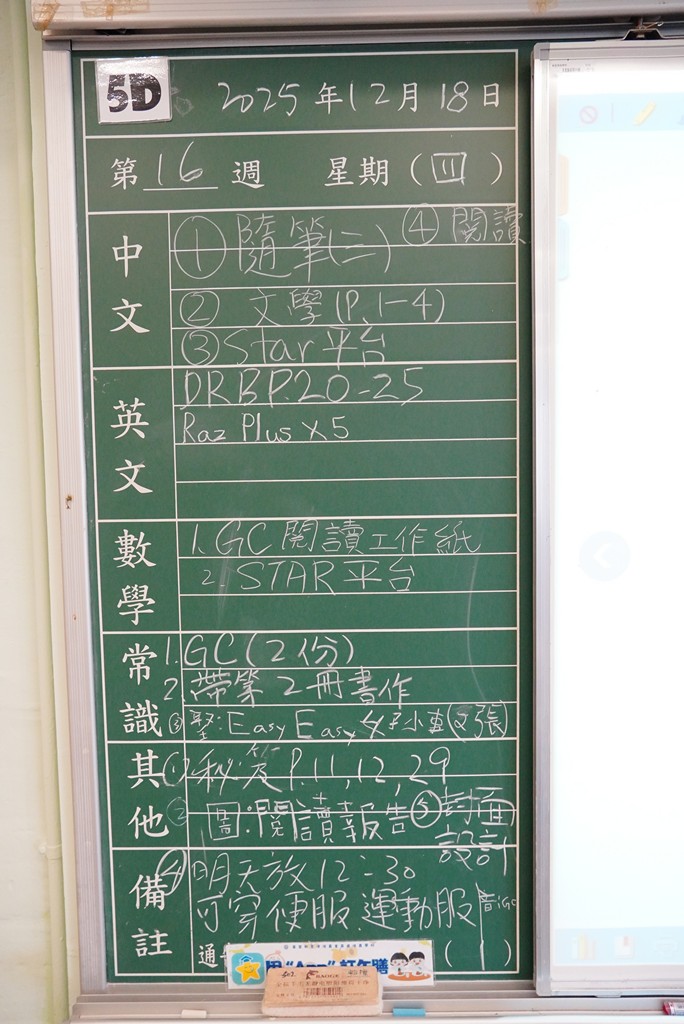 5D
2025年12月18日
第16週 星期（四）
中文
① 隨筆(二) ④ 閱讀
② 文學(P.1-4)
③ Star平台
英文
DRB P.20-25
Raz Plus x5
數學
1. GC 閱讀工作紙
2. STAR平台
常識
1. GC(2份)
2. 帶第2冊書作
Easy Easy 小車
其他
① P.11,12,29
② 圖:閱讀報告 ⑤ 封面設計
備註
④ 明天放12:30
可穿便服、運動服
通
(1)